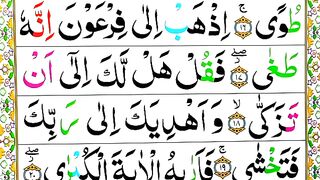 طُوًى ۚ﴿۱۶﴾ اِذْهَبْ اِلٰى فِرْعَوْنَ اِنَّهٗ
طَغٰى ۖ﴿۱۷﴾ فَقُلْ هَلْ لَّكَ اِلٰٓى اَنْ
تَزَكّٰى ۙ﴿۱۸﴾ وَاَهْدِيَكَ اِلٰى رَبِّكَ
فَتَخْشٰى ۚ﴿۱۹﴾ فَاَرٰىهُ الْاٰيَةَ الْكُبْرٰى ۖ﴿۲۰﴾